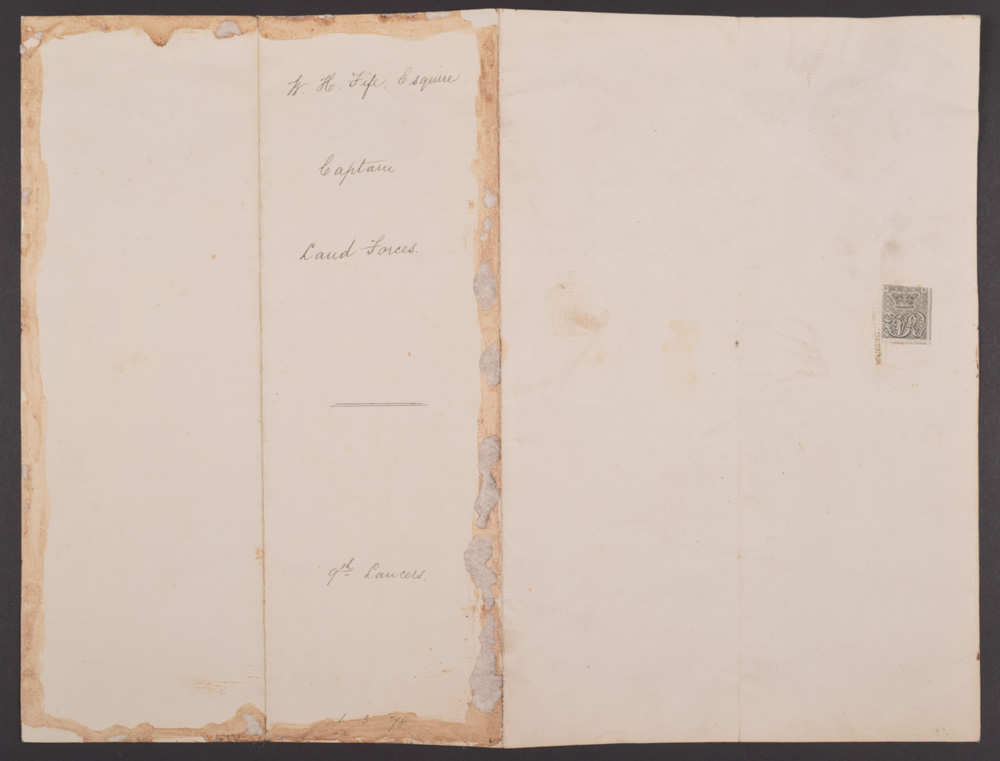 W. H. Fife. Esquire
Captain
Land Forces.
Lancers.
VR